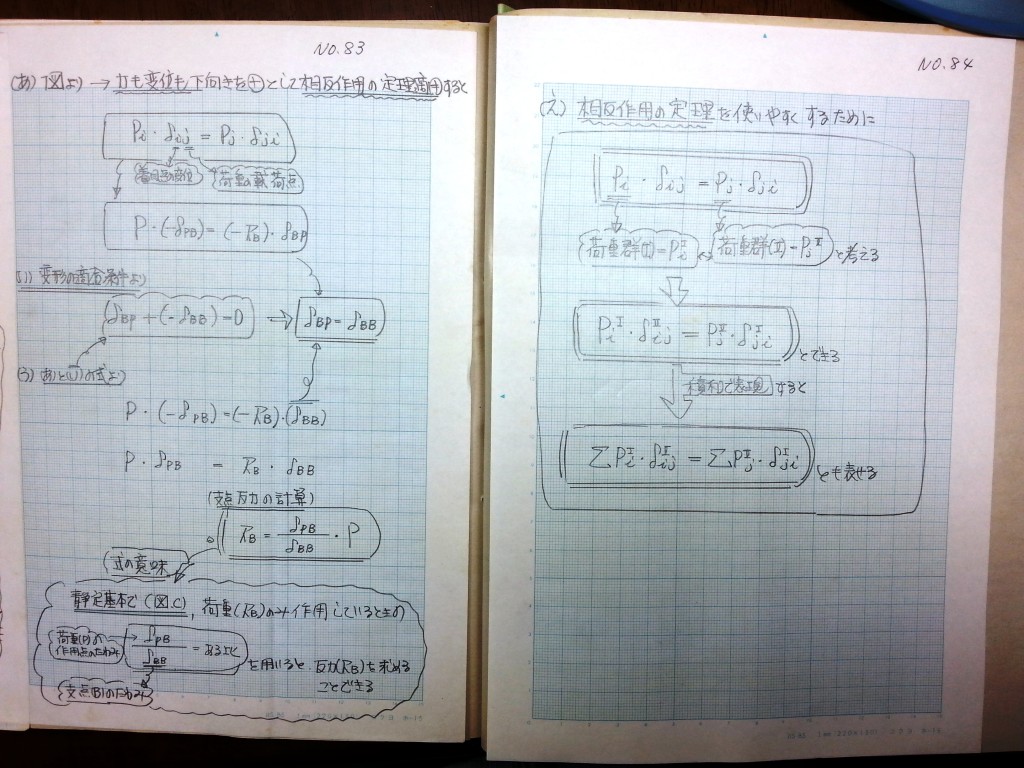 NO.83
(あ) 図より → 力も変位も下向きを⊕として相反作用の定理適用すると
Pi・δij = Pj・δji
着目点の変位 荷重の載荷点
P・(-δPB) = (-RB)・δBP
(い) 変形の適合条件より
δBP + (-δBB) = 0 ⇒ δBP = δBB
(う) (あ)と(い)の式より
P・(-δPB) = (-RB)・(δBB)
P・δPB = RB・δBB
(支点反力の計算)
RB = δPB/δBB・P
式の意味
静定基本で(図.C), 荷重(RB)のみ作用しているときの
荷重(P)の作用点のたわみ → δPB/δBB = ある比 を用いると、反力(RB)を求める
ことできる
支点(B)のたわみ
NO.84
(え) 相反作用の定理を使いやすくするために
Pi・δij = Pj・δji
荷重群(I)-PiI 荷重群(II)-PjII と考える
PiI・δijII = PjII・δjiI とできる
積和で表現すると
ΣPiI・δijII = ΣPjII・δjiI とも表せる